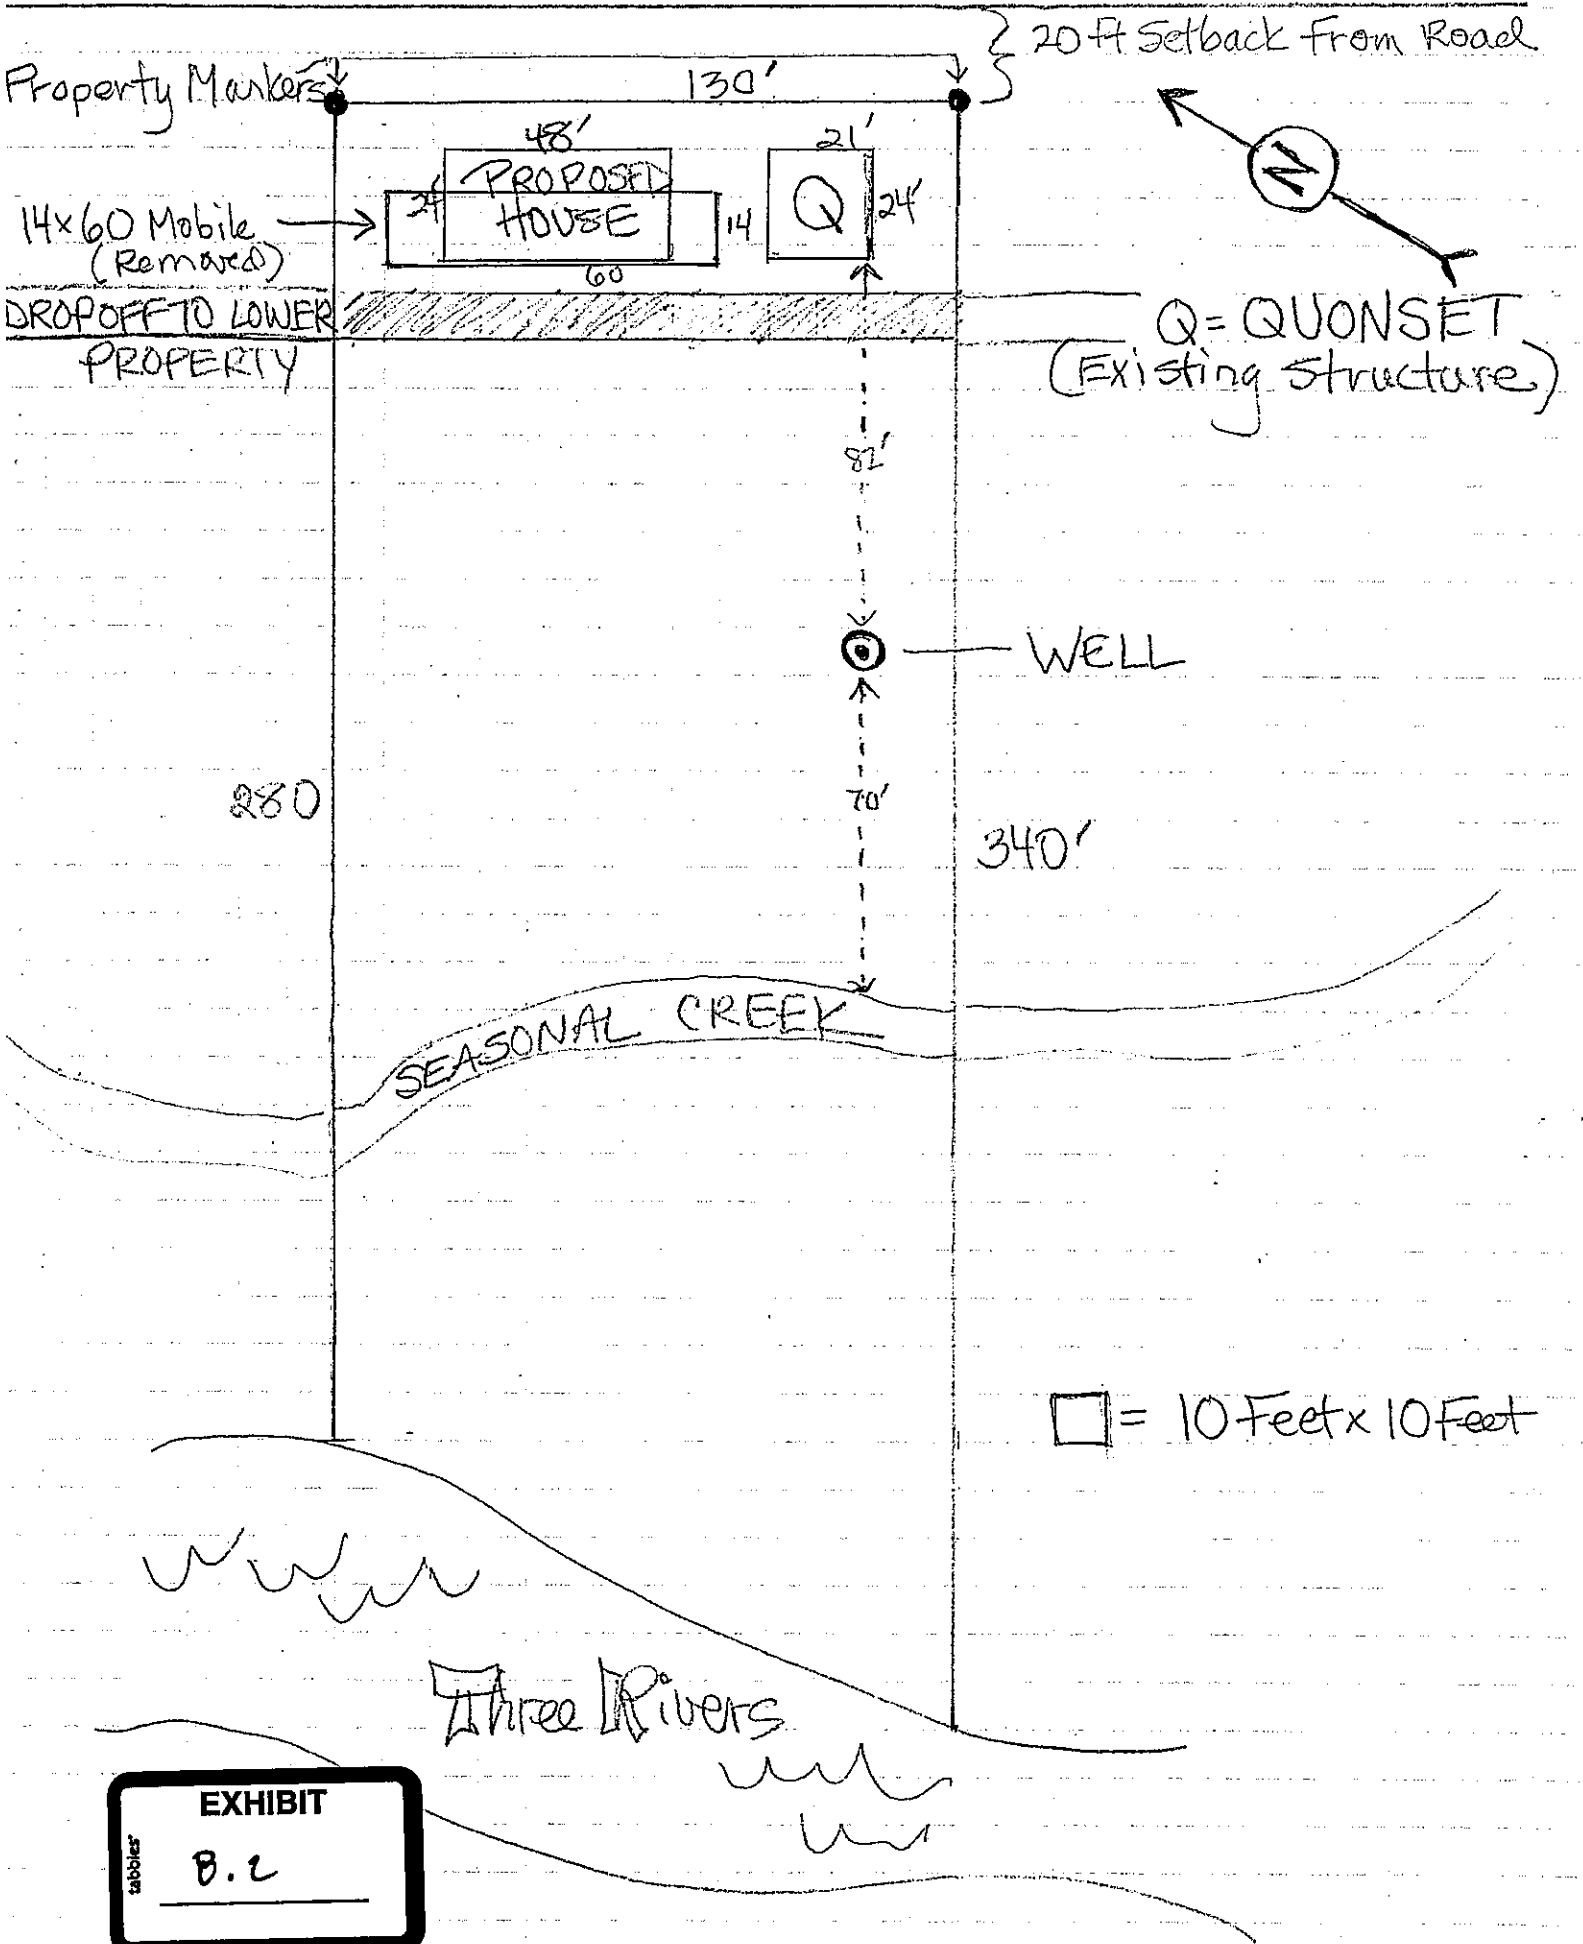 20 ft Setback From Road
Property Markers
130'
48'
21'
PROPOSED
HOUSE
24'
14
Q
24'
14x60 Mobile
(Removed)
60
N
DROPOFF TO LOWER
PROPERTY
Q = QUONSET
(Existing Structure)
82'
WELL
280
70'
340'
SEASONAL CREEK
= 10 Feet x 10 Feet
Three Rivers
EXHIBIT
tabbies'
B.2